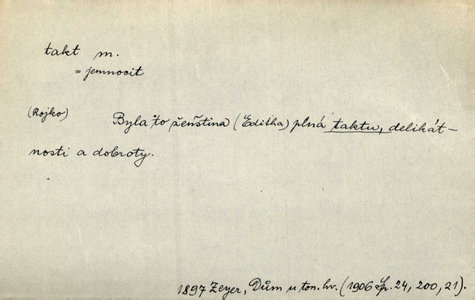 takt m.
= jemnocit
(Rojko) Byla to ženština (Editha) plná taktu, delikát-
nosti a dobroty.
1897 Zeyer, Dům u ton. hv. (1906 Sp. 24, 200, 21).